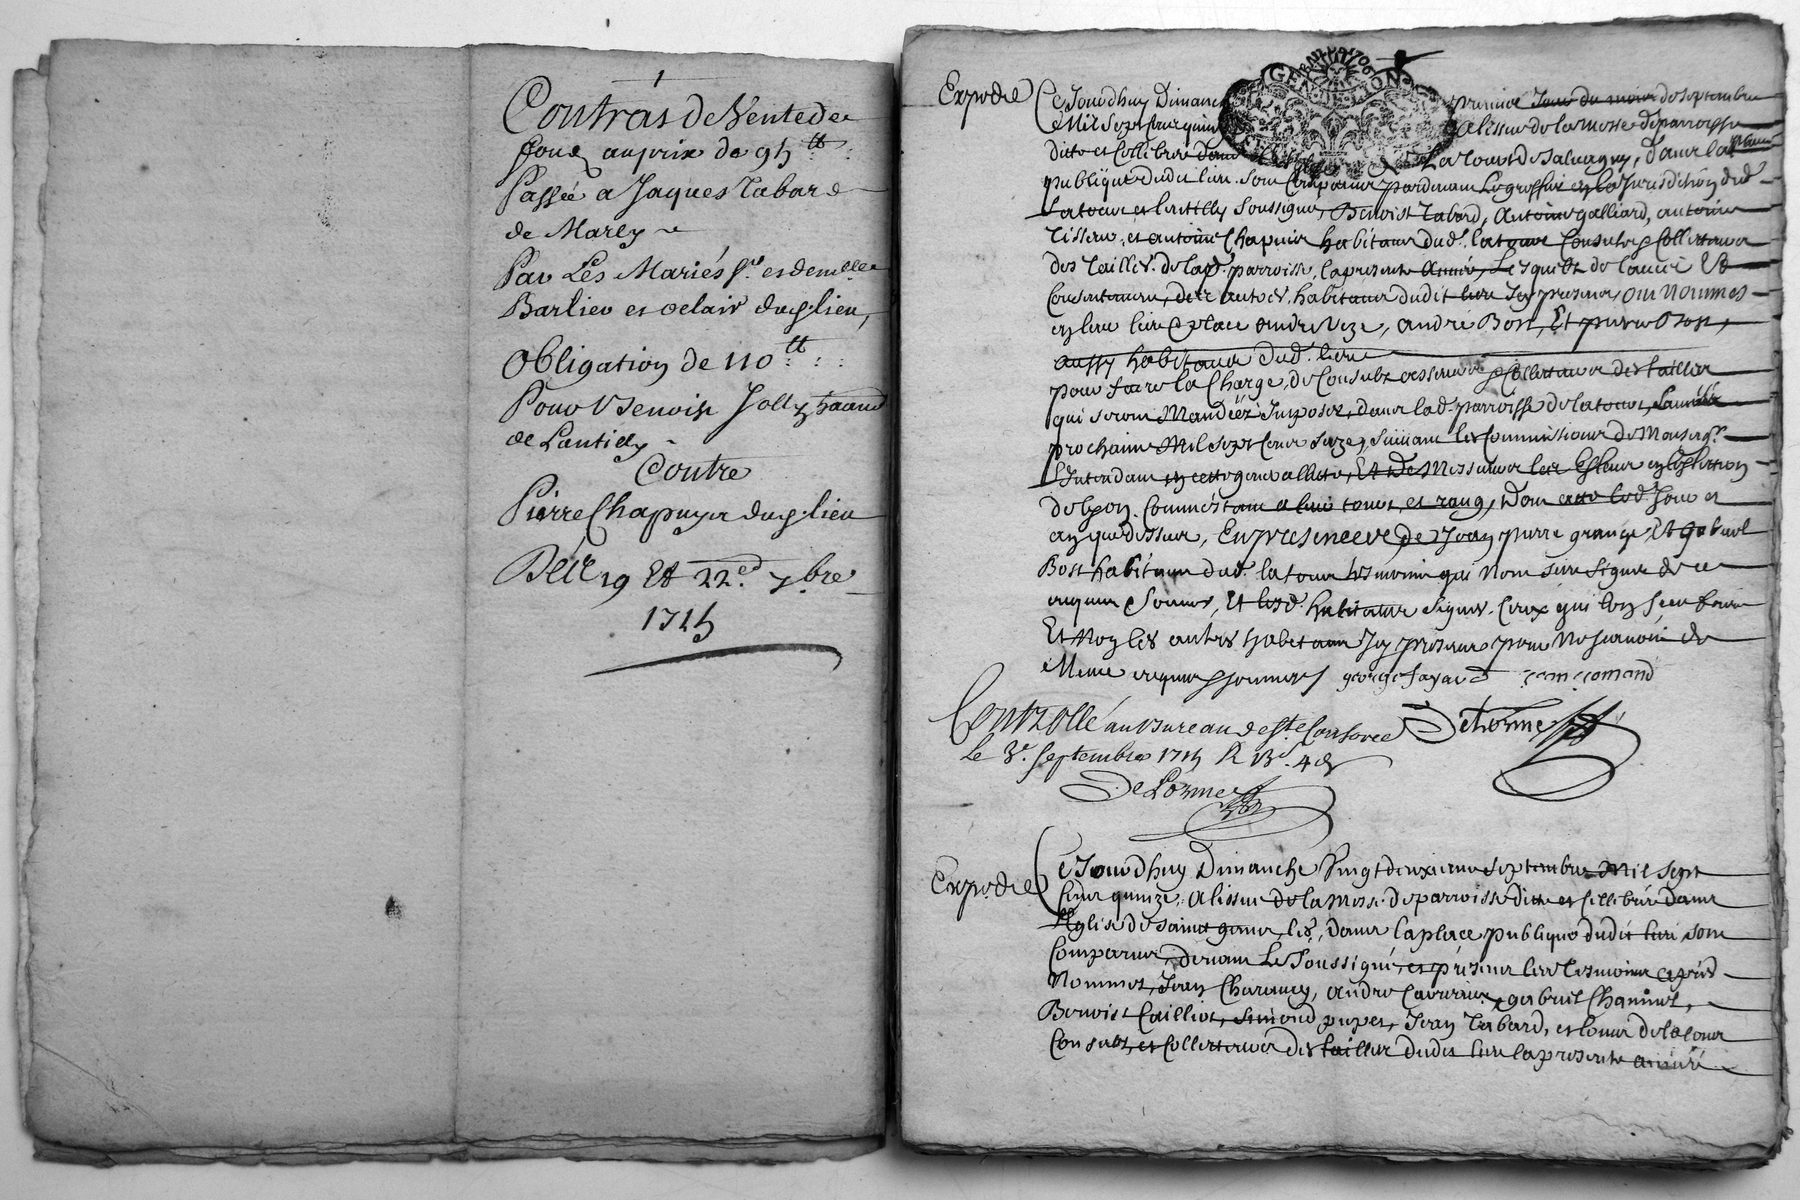 Contrás de Vente de
fond au prix de 95 tt
Passée a Jaques Tabard
de Marcy
Par Les Mariés Sr et demelle
Barlieu et Delair dud. lieu,
Obligation de 110 tt
Pour Benoist Jolly
de Lantilly
Contre
Pierre Chapuys dud. lieu
De 19 Et 22e 7bre
1715
GEN DE LION
Expedié Ce Jourdhuy Dimanche premier Jour du mois de septembre
Mil Sept Cent quinze a lissue de la messe de parroisse
ditte et Cellebrée dans La tour de Salvagny, dans la place
publique dudit lieu sont Comparus pardevant Le greffier en la Jurisdition de
Latour et lentilly soussigné, Benoist Tabard, Antoine galliard, antoine
Tisseur, et antoine Chapuis habitans dud. latour Consuls & Collecteurs
des Tailles de lad. parroisse, la presente Année, Lesquels de lauis Et
Consentement, des autres habitans dudit lieu Icy presens, ont Nommés
en leur lieu & place andre Veze, andré Bost, Et pierre Bost,
aussy habitans dud. lieu
pour faire la Charge, de Consuls asseeurs & Collecteurs des tailles
qui seront Mandées Imposées, dans lad. parroisse de latour, Lannée
prochaine Mil sept Cent seize, suivant les Commissions de Monseigr.
L'Intendant en cette generallitté, Et de Messieurs les Esleus en l'Eslection
de lyon. Comme estant a leur tour, et rang, Dont acte led. Jour et
an que dessus, En presence de Jean pierre grange, Et gabriel
Bost habitans dud. latour tesmoins qui n'ont sceu signer de ce
enquis & sommés, Et lesd. habitans signés. Ceux qui lon sceu faire
Et Non les autres habitans Icy presens pour Ne scauoir de
Meme enquis & sommés george fayard
Controllé au Bureau de Ste Consorce DeLorme
le 3e. septembre 1715 R 13s. 4d
DeLorme
Expedié Ce Jourdhuy Dimanche Vingt deuxieme septembre Mil Sept
Cent quinze, a lissue de la Messe de parroisse ditte et Cellebrée dans
l'Eglise de saint genis les, dans la place publique dudit lieu, sont
Comparus, devant Le Soussigné, et presens les tesmoins cy apres
Nommés, Jean Charancy, andre gabriel Chaminet,
Benoist Cailliot, simond pupet, Jean Tabard, et Louis de la Cour
Consuls, et Collecteurs des tailles dudit lieu la presente année